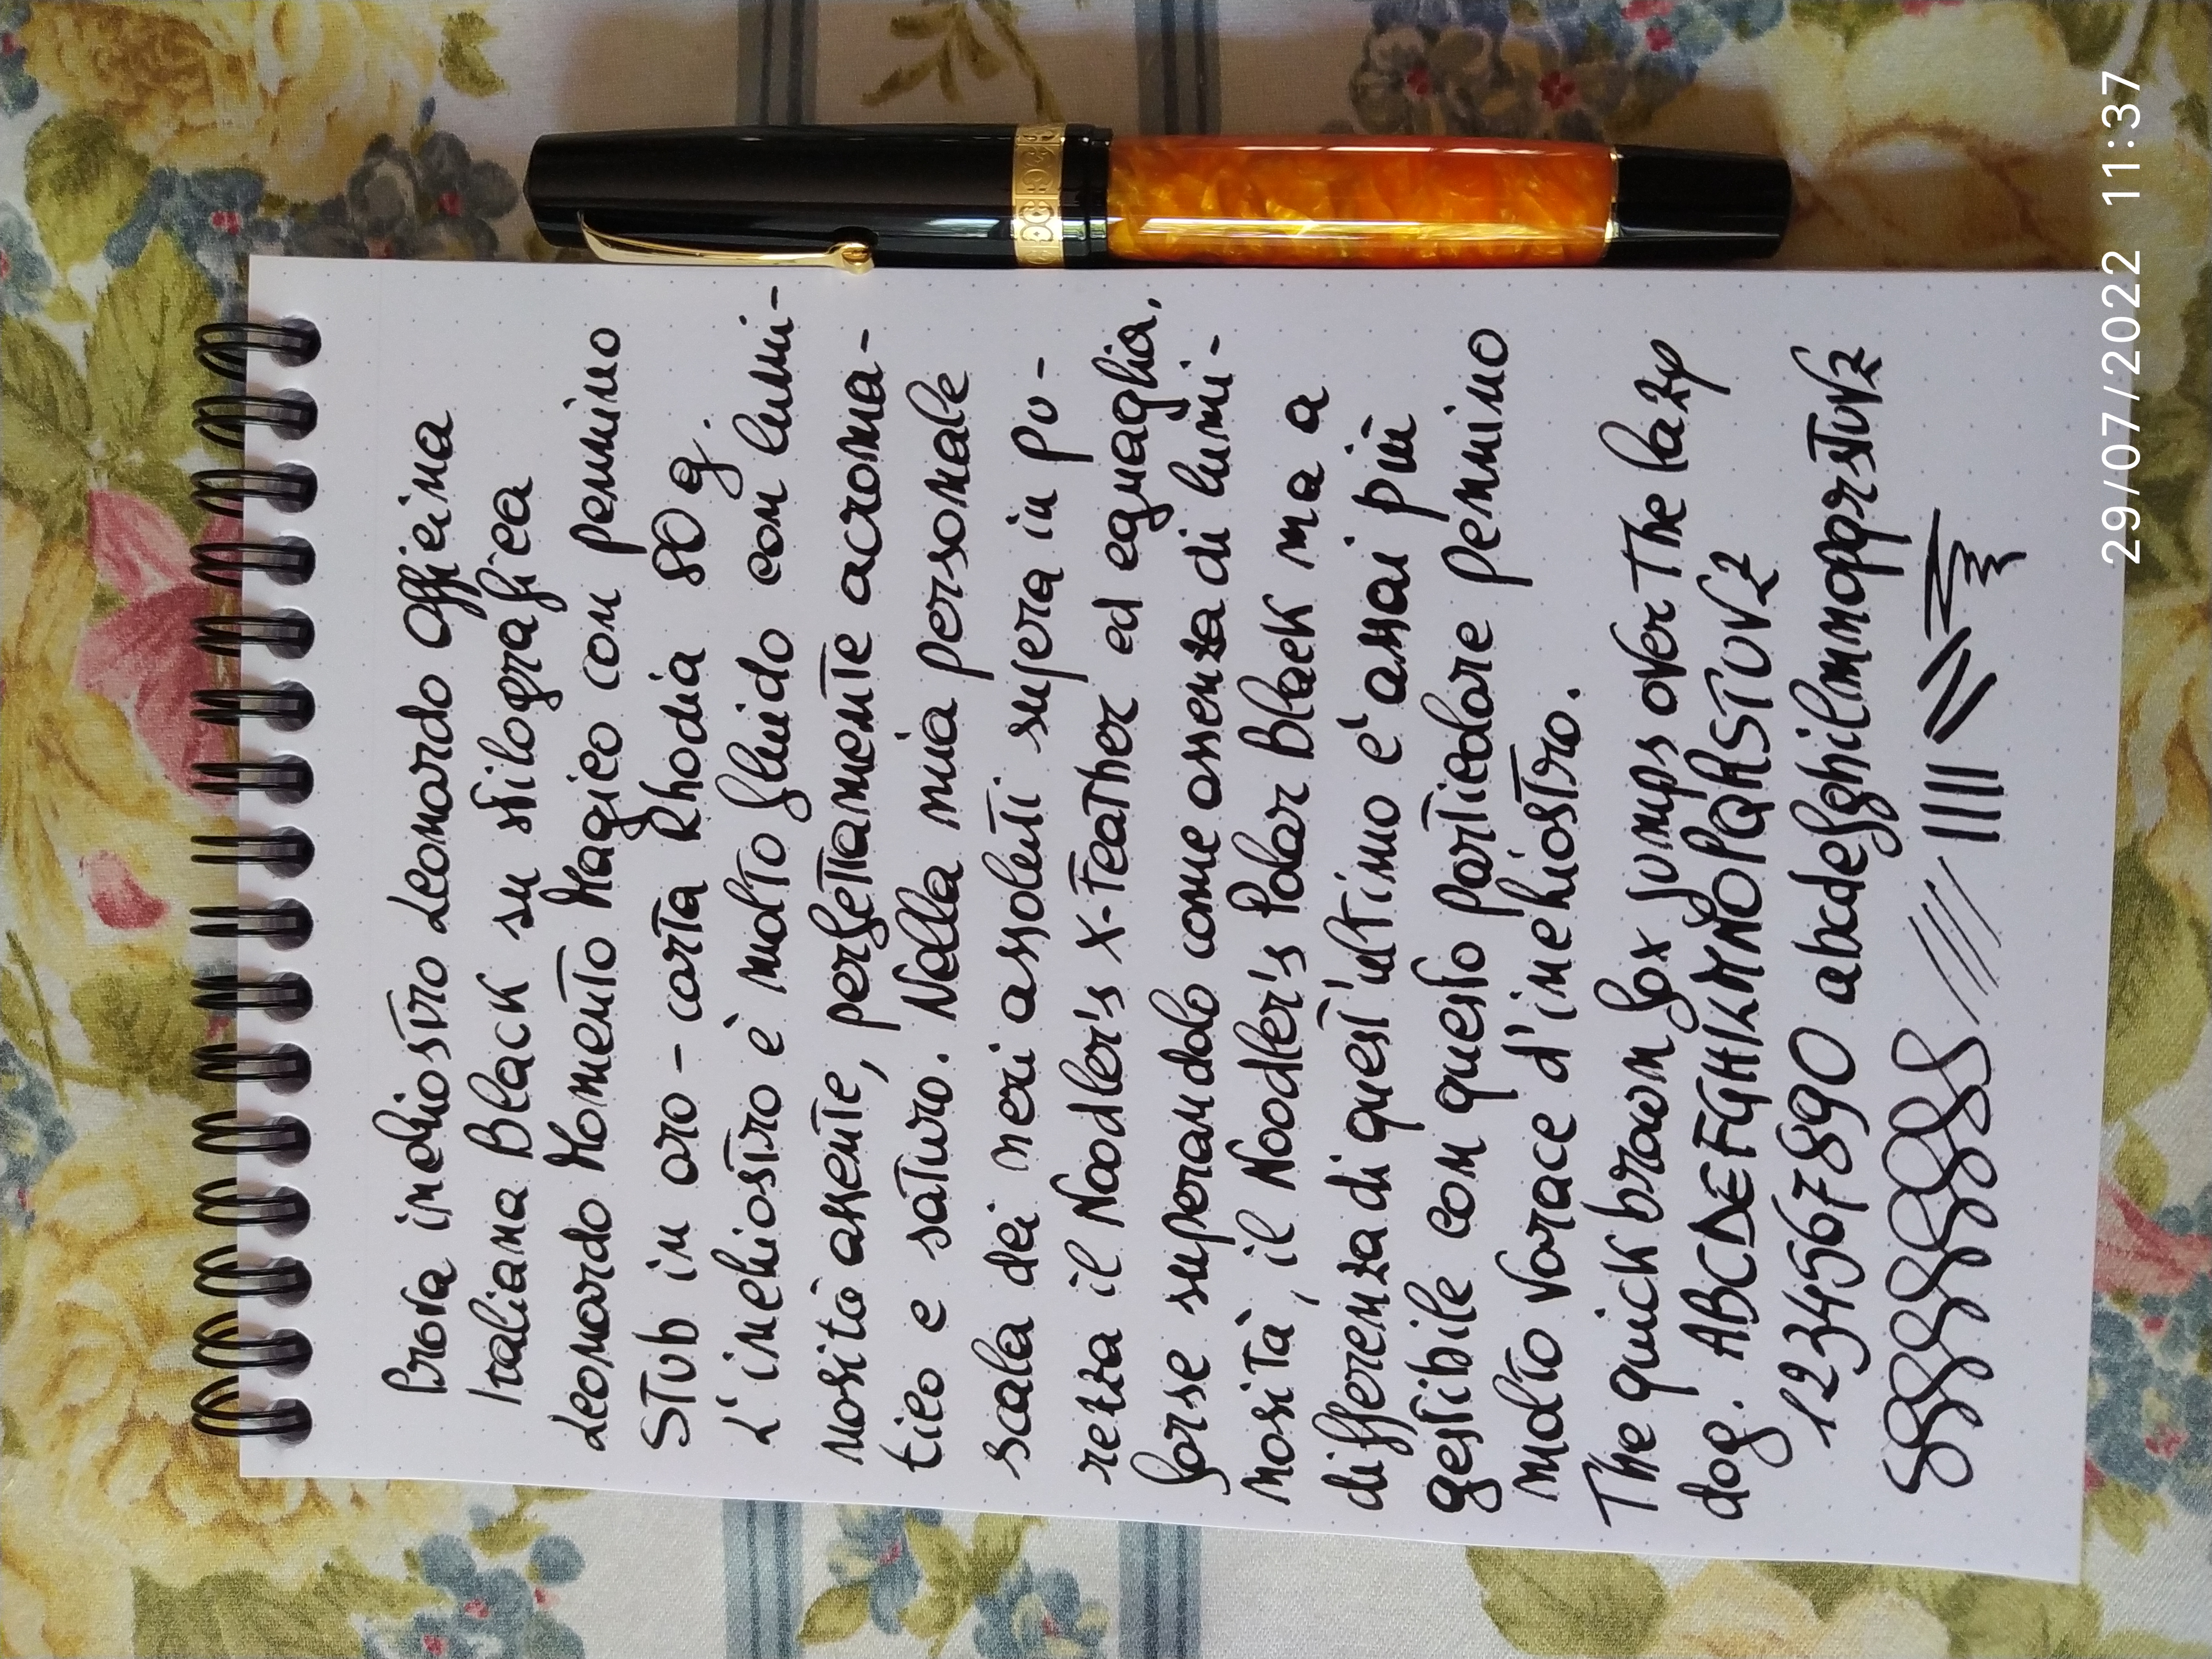 Prova inchiostro Leonardo Officina
Italiana Black su stilografica
Leonardo Momento Magico con pennino
Stub in oro - carta Rhodia 80 g.
L'inchiostro è molto fluido con lumi-
nosità assente, perfettamente acroma-
tico e saturo. Nella mia personale
scala dei neri assoluti supera in pu-
rezza il Noodler's X-Feather ed eguaglia,
forse superandolo come assenza di lumi-
nosità, il Noodler's Polar Black ma a
differenza di quest'ultimo e' assai più
gestibile con questo particolare pennino
molto vorace d'inchiostro.
The quick brown fox jumps over the lazy
dog. ABCDEFGHILMNOPQRSTUVZ
1234567890 abcdefghilmnopqrstuvz
29/07/2022 11:37